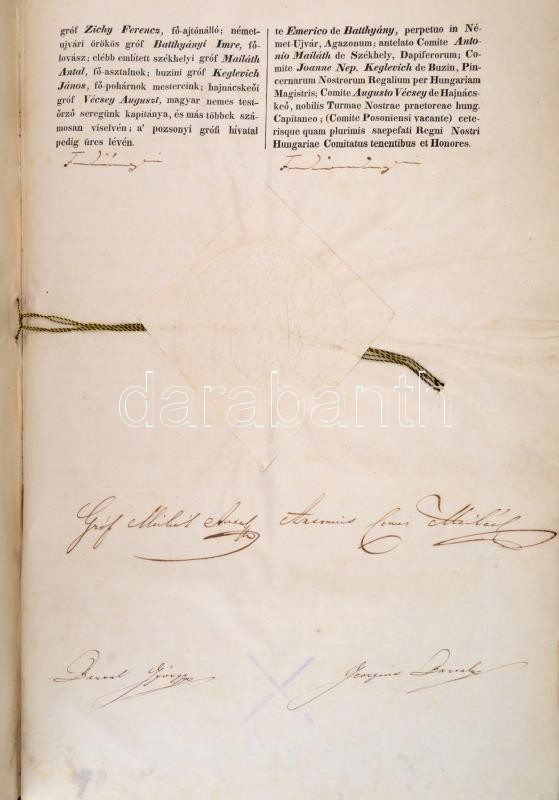 gróf Zichy Ferencz, fő-ajtónálló; német-
ujvári örökös gróf Batthyányi Imre, fő-
lovász; elébb említett székhelyi gróf Mailáth
Antal, fő-asztalnok; buzini gróf Keglevich
János, fő-pohárnok mestereink; hajnácskeői
gróf Vécsey Auguszt, magyar nemes test-
őrző seregünk kapitánya, és más többek szá-
mosan viselvén; a' pozsonyi grófi hivatal
pedig üres lévén.
te Emerico de Batthyány, perpetuo in Né-
met-Ujvár, Agazonum; antelato Comite Anto-
nio Mailáth de Székhely, Dapiferorum; Co-
mite Joanne Nep. Keglevich de Buzin, Pin-
cernarum Nostrorum Regalium per Hungariam
Magistris; Comite Augusto Vécsey de Hajnács-
keő, nobilis Turmae Nostrae praetoreae hung.
Capitaneo; (Comitatu Posoniensi vacante) cete-
risque quam plurimis saepefati Regni Nostri
Hungariae Comitatus tenentibus et Honores.
darabanth
Gróf Mailát Antal
Antonius Comes Mailáth
Bartal György
Georgius Bartal